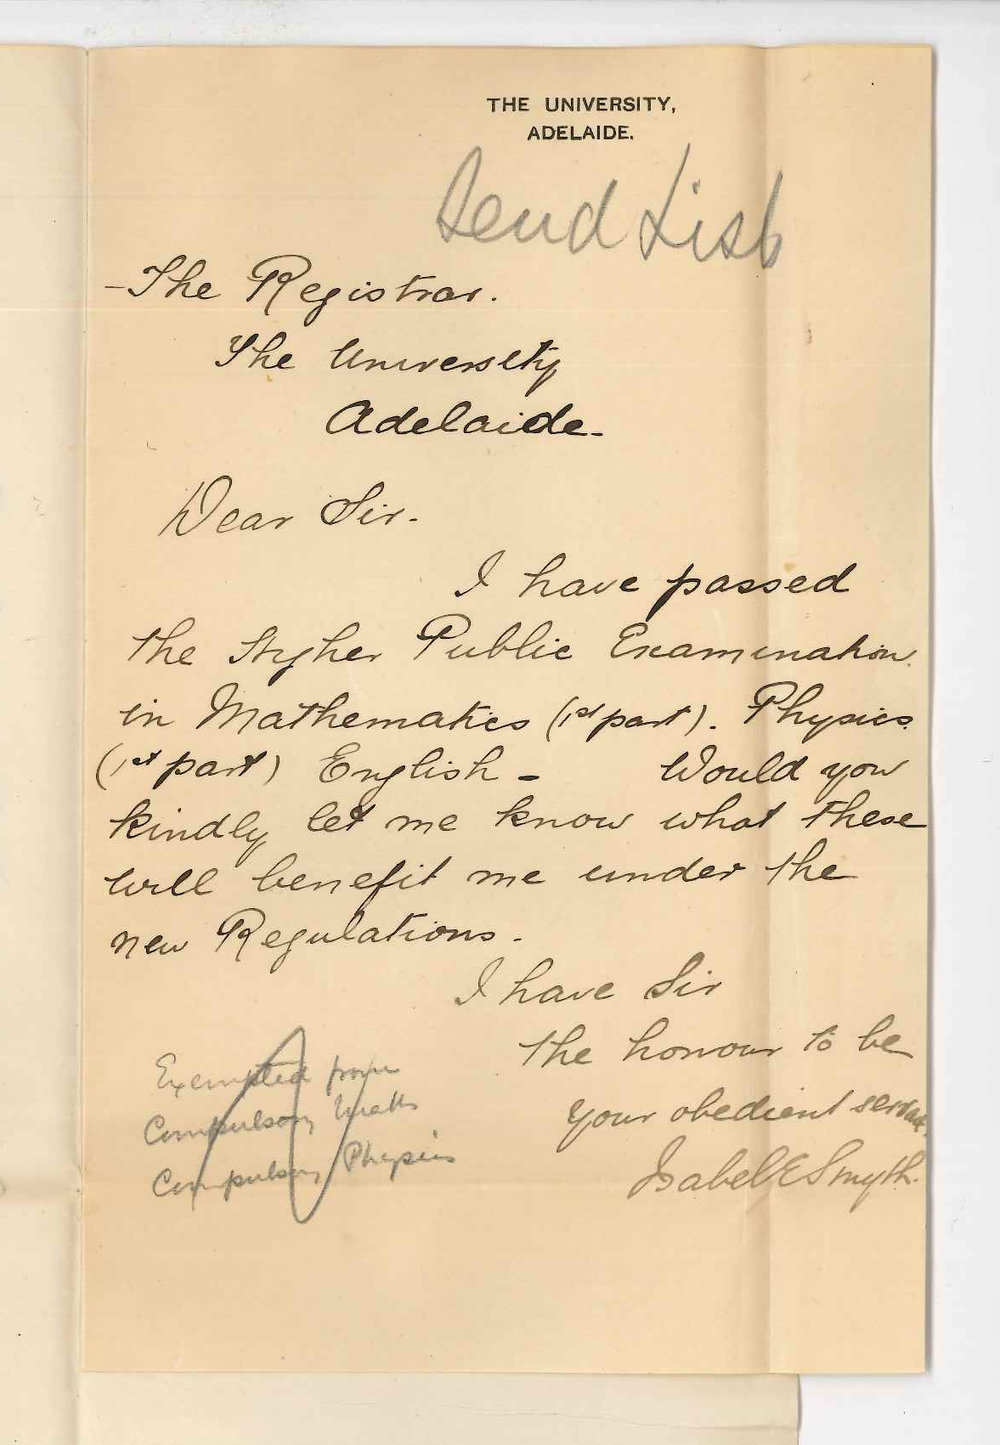 THE UNIVERSITY,
ADELAIDE.
Send List
The Registrar.
The University
Adelaide.
Dear Sir.
I have passed
the Higher Public Examination
in Mathematics (1st part). Physics
(1st part) English -   Would you
kindly let me know what these
will benefit me under the
new Regulations.
I have Sir
the honour to be
Your obedient servant.
Isabel E Smyth.
Exempted from
Compulsory Maths
Compulsory Physics